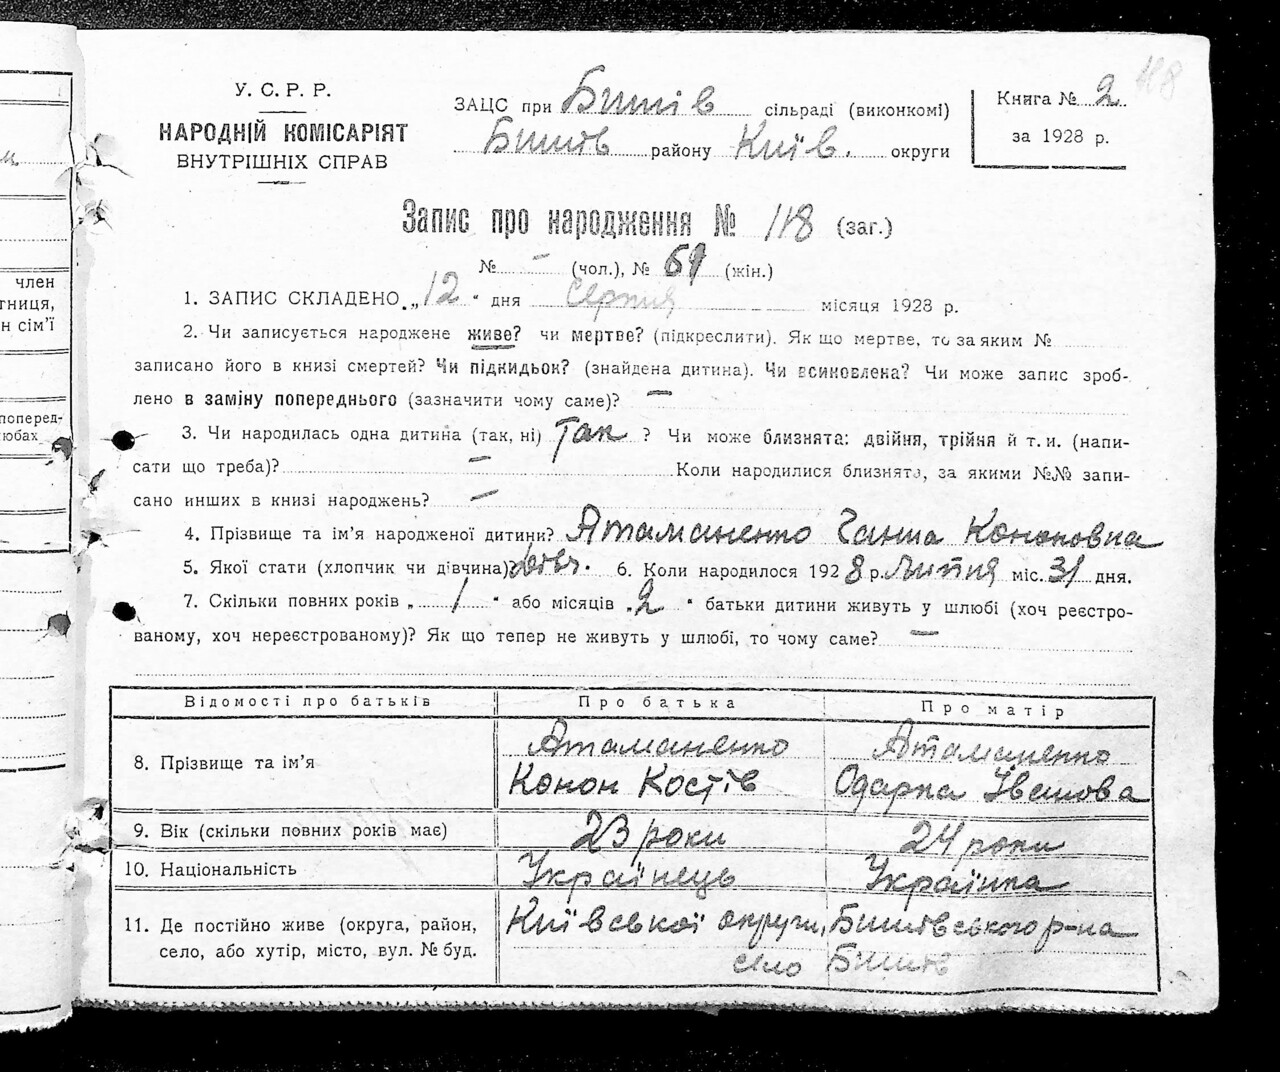 118
У. С. Р. Р.
НАРОДНІЙ КОМІСАРІЯТ
ВНУТРІШНІХ СПРАВ
ЗАЦС при Бишів сільраді (виконкомі)
Бишів району Київ. округи
Книга № 2
за 1928 р.
Запис про народження № 118 (заг.)
№ - (чол.), № 61 (жін.)
1. ЗАПИС СКЛАДЕНО „12" дня серпня місяця 1928 р.
2. Чи записується народжене живе? чи мертве? (підкреслити). Як що мертве, то за яким №
записано його в книзі смертей? Чи підкидьок? (знайдена дитина). Чи всиновлена? Чи може запис зроб-
лено в заміну попереднього (зазначити чому саме)? —
3. Чи народилась одна дитина (так, ні) Так ? Чи може близнята: двійня, трійня й т. и. (напи-
сати що треба)? — Коли народилися близнята, за якими №№ запи-
сано инших в книзі народжень? —
4. Прізвище та ім'я народженої дитини? Атаманенко Ганна Кононовна
5. Якої статі (хлопчик чи дівчина)? дівч. 6. Коли народилося 1928 р. Липня міс. 31 дня.
7. Скільки повних років „ 1 " або місяців „ 2 " батьки дитини живуть у шлюбі (хоч реєстро-
ваному, хоч нереєстрованому)? Як що тепер не живуть у шлюбі, то чому саме? —
Відомості про батьків Про батька Про матір
8. Прізвище та ім'я Атаманенко Конон Костів Атаманенко Одарка Іванова
9. Вік (скільки повних років має) 23 роки 24 роки
10. Національність Українець Українка
11. Де постійно живе (округа, район, Київської округи, Бишівського р-на
село, або хутір, місто, вул. № буд. село Бишів
член
тниця,
н сім'ї
поперед-
юбах